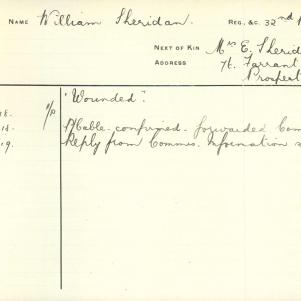 NAME William Sheridan. REG., &C. 32nd
NEXT OF KIN Mrs E. Sherid
ADDRESS 76. Farrant
Prosper
"Wounded".
18.
18. Cable confirmed. forwarded Com
19. Reply from Commos. Information s